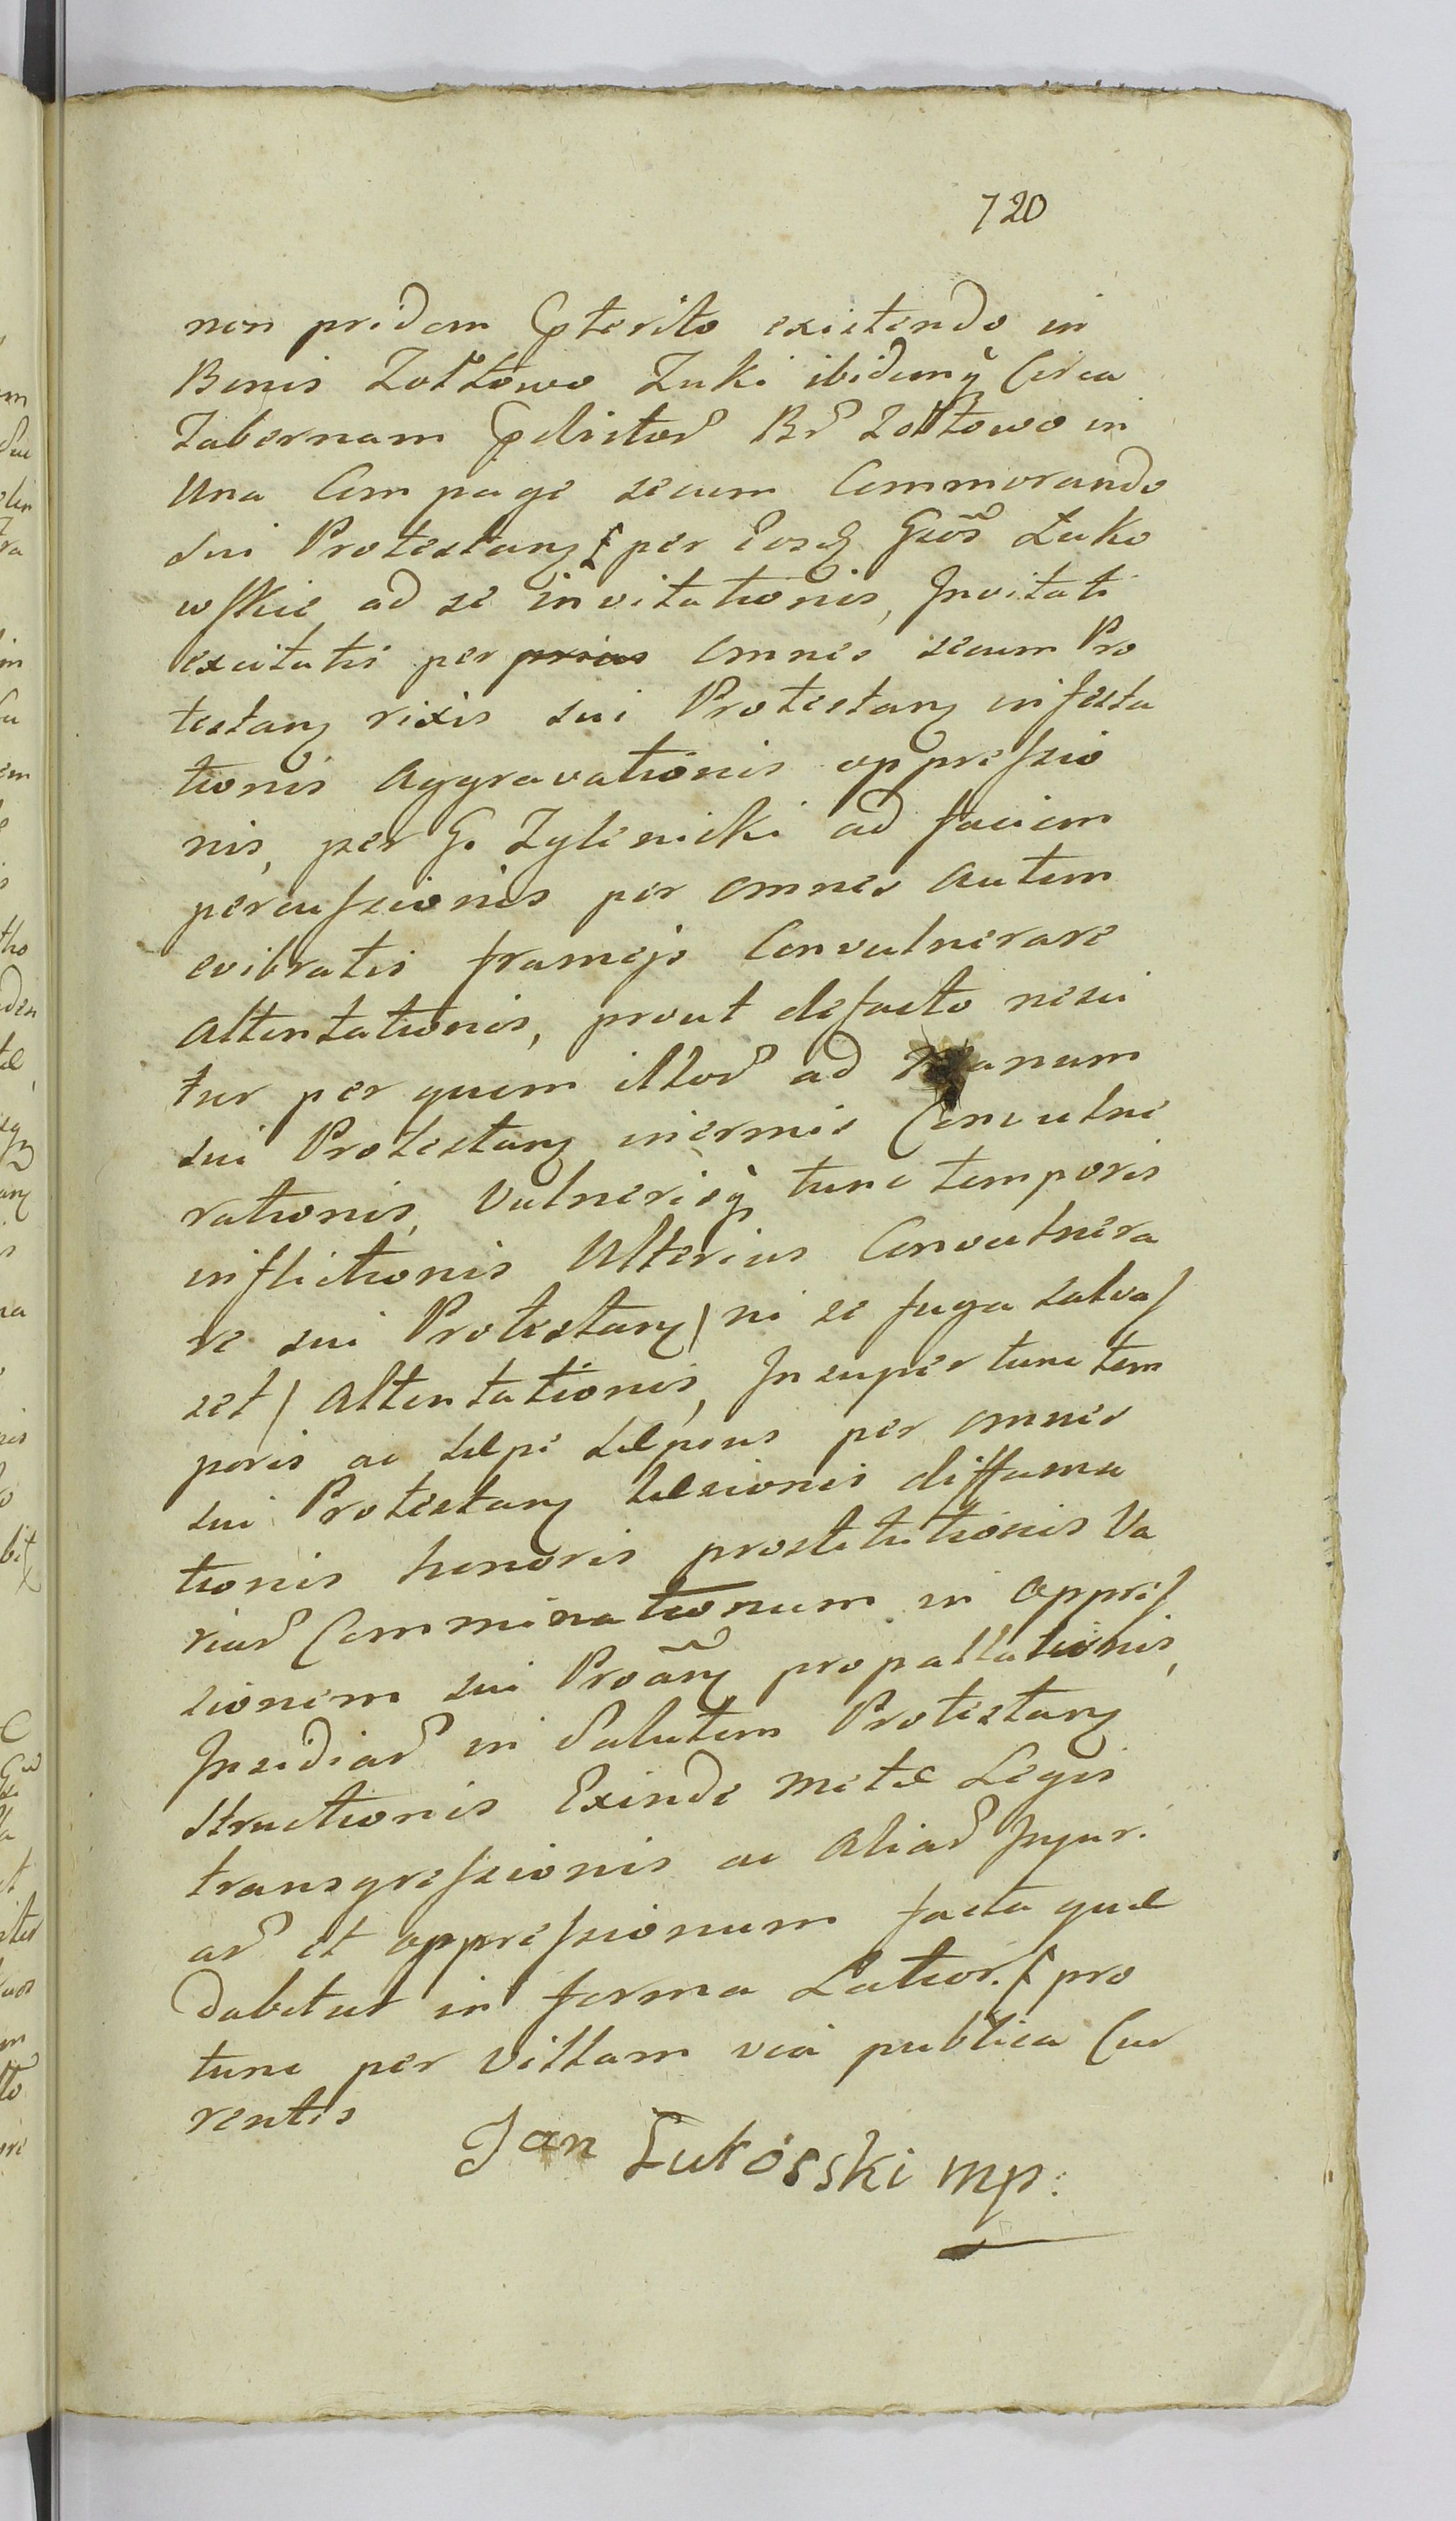 720
non pridem Pterito existendo in
Bonis Zołtowo Zuki ibidemq́ Circa
Tabernam Pdictoꝝ Bꝝ Zołtowo in
Una Compage secum Commorando
sui Protestanꝭ per Eosd Gños Łuko
wskie ad se invitationis, Invitati
excitatis per omnes secum Pro
testanꝭ rixis sui Protestanꝭ infesta
tionis Aggravationis oppressio
nis, per G. Zylenicki ad faciem
percussionis per omnes autem
evibratis frameis Convulnerare
attentationis, prout defacto nesci
tur per quem illoꝝ ad Manum
sui Protestanꝭ inermis Convulne
rationis, Vulnerisq́ tunc temporis
inflictionis Ulterius Convulnera
re sui Protestanꝭ / ni se fuga salvas
set / attentationis, Insuper tunc tem
poris ac sæpe sæpius per omnes
sui Protestanꝭ læsionis diffama
tionis honoris prostitutionis Va
riaꝝ Comminationum in oppres
sionem sui Proãnꝭ propallationis,
Insidiaꝝ in Salutem Protestanꝭ
structionis Exinde Metæ Legis
transgressionis ac aliaꝝ Injuri
aꝝ et oppressionum facta quæ
dabitur in forma Latior. pro
tunc per Villam via publica Cur
rentis
Jan Łukosski mp: